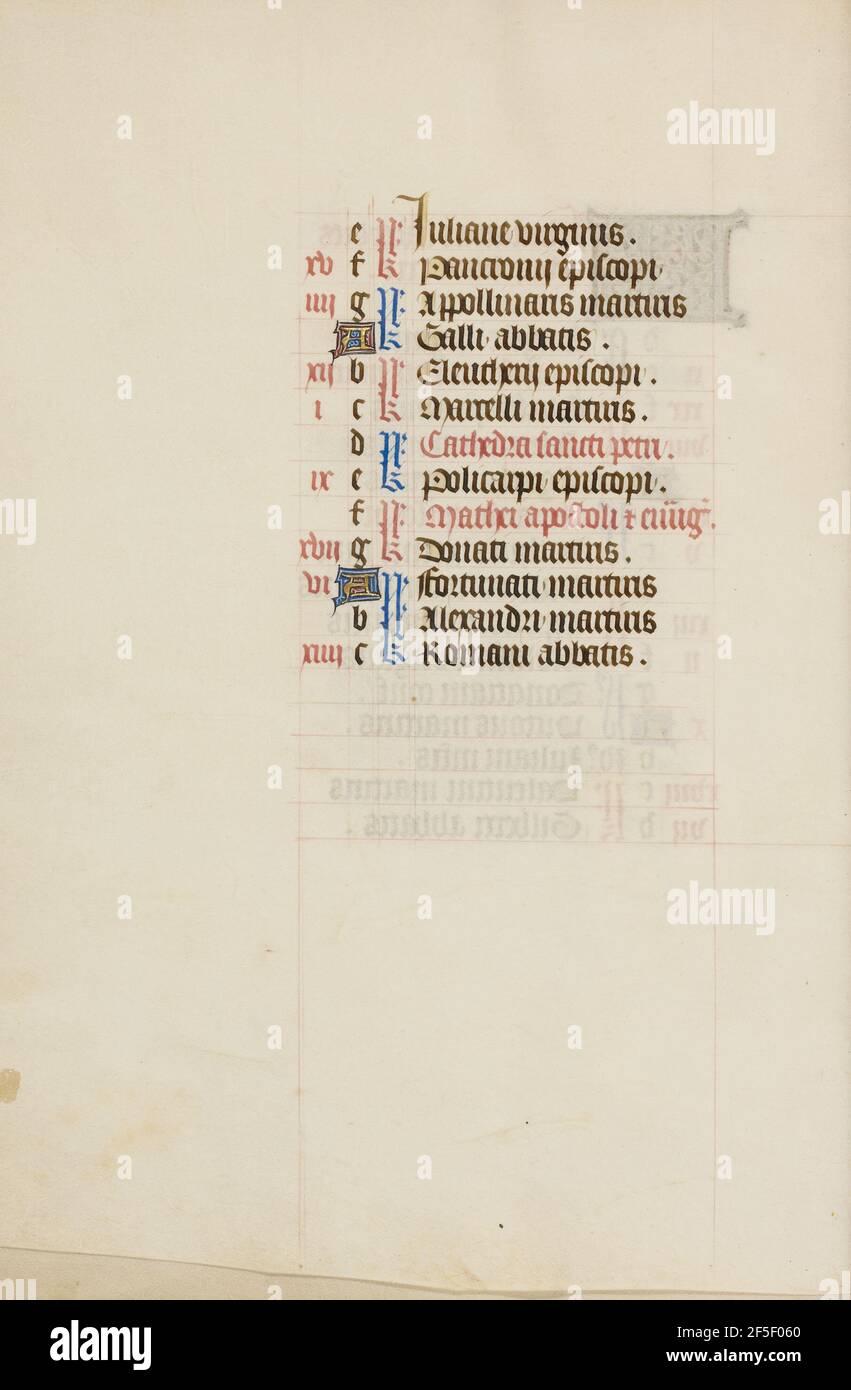 e kł Iuliane virginis.
xv f kł Pancronij episcopi
iiij g kł Appollinaris martiris
A kł Galli abbatis.
xij b kł Eleutherij episcopi.
i c kł Marcelli martiris.
d kł Cathedra sancti petri.
ix e kł Policarpi episcopi.
f kł Mathei apostoli et
xvij g kł Donati martiris.
vi A kł Fortunati martiris
b kł Alexandri martiris
xiiij c kł Romani abbatis.
alamy
alamy
alamy
Image ID: 2F5F060
www.alamy.com